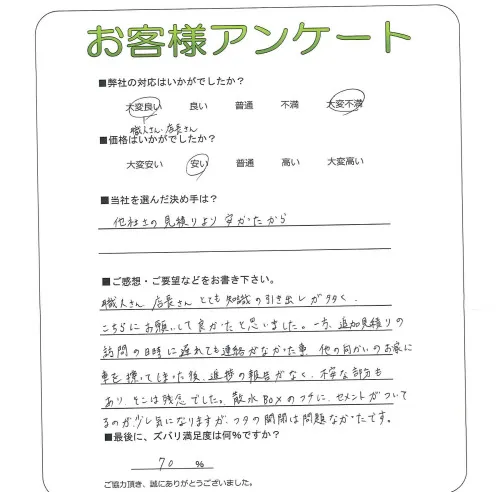 お客様アンケート
■弊社の対応はいかがでしたか?
大変良い 良い 普通 不満 大変不満
職人さん、店長さん
■価格はいかがでしたか?
大変安い 安い 普通 高い 大変高い
■当社を選んだ決め手は?
他社さの見積りより安かったから
■ご感想・ご要望などをお書き下さい。
職人さん 店長さん とても知識の引き出しが多く、
こちらにお願いして良かたと思いました。一方、追加見積りの
訪問の日時に遅れても連絡がなかた事、他の向かいのお家に
車を擦ってしまた後、進捗の報告がなく、不安な部分も
あり、そこは残念でした。散水BOXのフチに、セメントがついて
るのが少し気になりますが、フタの開閉は問題なかたです。
■最後に、ズバリ満足度は何%ですか?
70 %
ご協力頂き、誠にありがとうございました。